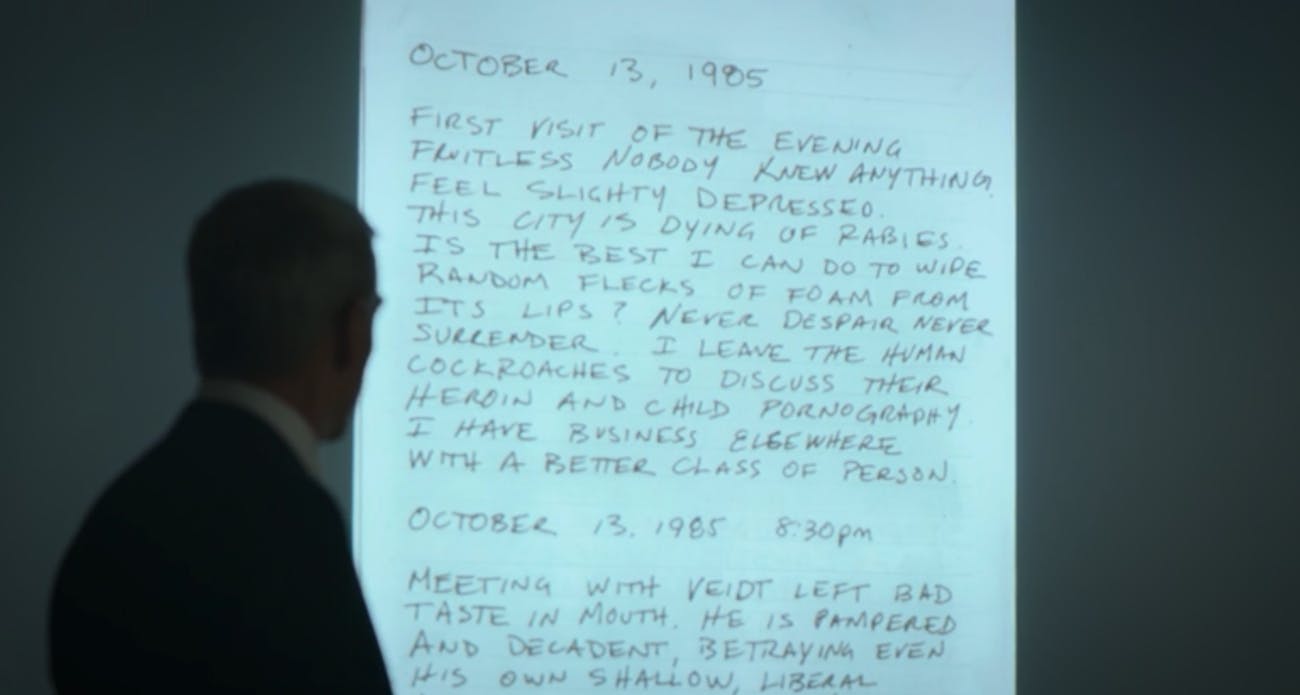 OCTOBER 13, 1985
FIRST VISIT OF THE EVENING
FRUITLESS NOBODY KNEW ANYTHING.
FEEL SLIGHTY DEPRESSED.
THIS CITY IS DYING OF RABIES.
IS THE BEST I CAN DO TO WIPE
RANDOM FLECKS OF FOAM FROM
ITS LIPS? NEVER DESPAIR NEVER
SURRENDER. I LEAVE THE HUMAN
COCKROACHES TO DISCUSS THEIR
HEROIN AND CHILD PORNOGRAPHY.
I HAVE BUSINESS ELSEWHERE
WITH A BETTER CLASS OF PERSON.
OCTOBER 13. 1985 8:30pm
MEETING WITH VEIDT LEFT BAD
TASTE IN MOUTH. HE IS PAMPERED
AND DECADENT, BETRAYING EVEN
HIS OWN SHALLOW, LIBERAL